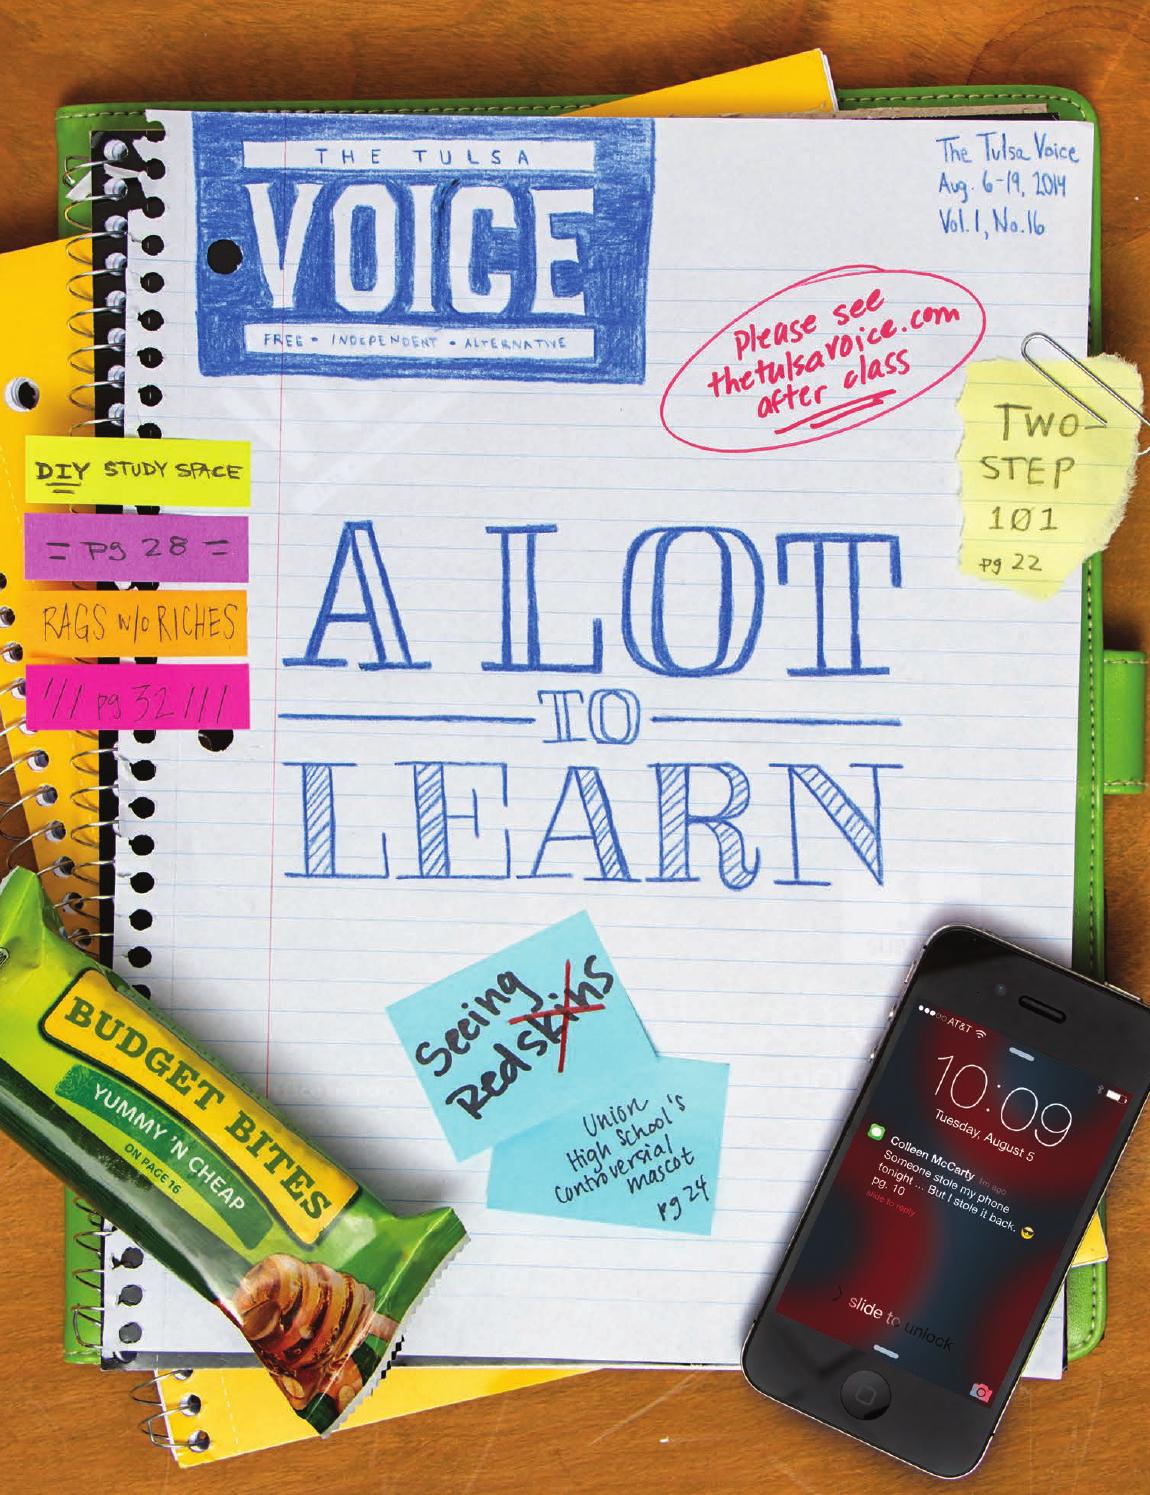 THE TULSA
VOICE
FREE • INDEPENDENT • ALTERNATIVE
The Tulsa Voice
Aug. 6-19, 2014
Vol. 1, No. 16
Please see
thetulsavoice.com
after class
TWO-
STEP
101
pg 22
DIY STUDY SPACE
= pg 28 =
RAGS w/o RICHES
/// pg 32 ///
A LOT
TO
LEARN
Seeing
Redskins
Union
High School's
Controversial
mascot
pg 24
BUDGET BITES
YUMMY 'N CHEAP
ON PAGE 16
AT&T
10:09
Tuesday, August 5
Colleen McCarty 1m ago
Someone stole my phone
tonight ... But I stole it back. 😎
pg. 10
slide to reply
> slide to unlock